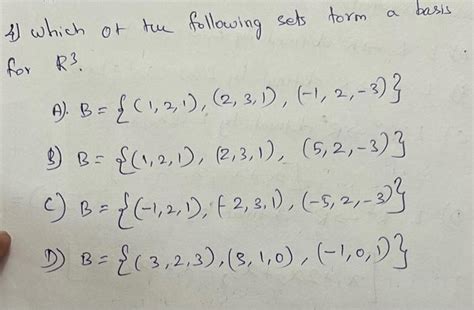 4) which of the following sets form a basis
for R³.
A). B = {(1,2,1), (2,3,1), (-1, 2, -3)}
B) B = {(1,2,1), (2,3,1), (5,2,-3)}
C) B = {(-1,2,1), (-2,3,1), (-5,2,-3)}
D) B = {(3,2,3), (3,1,0), (-1,0,1)}